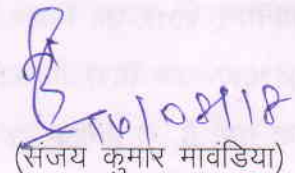 16/08/18
(संजय कुमार मावंडिया)